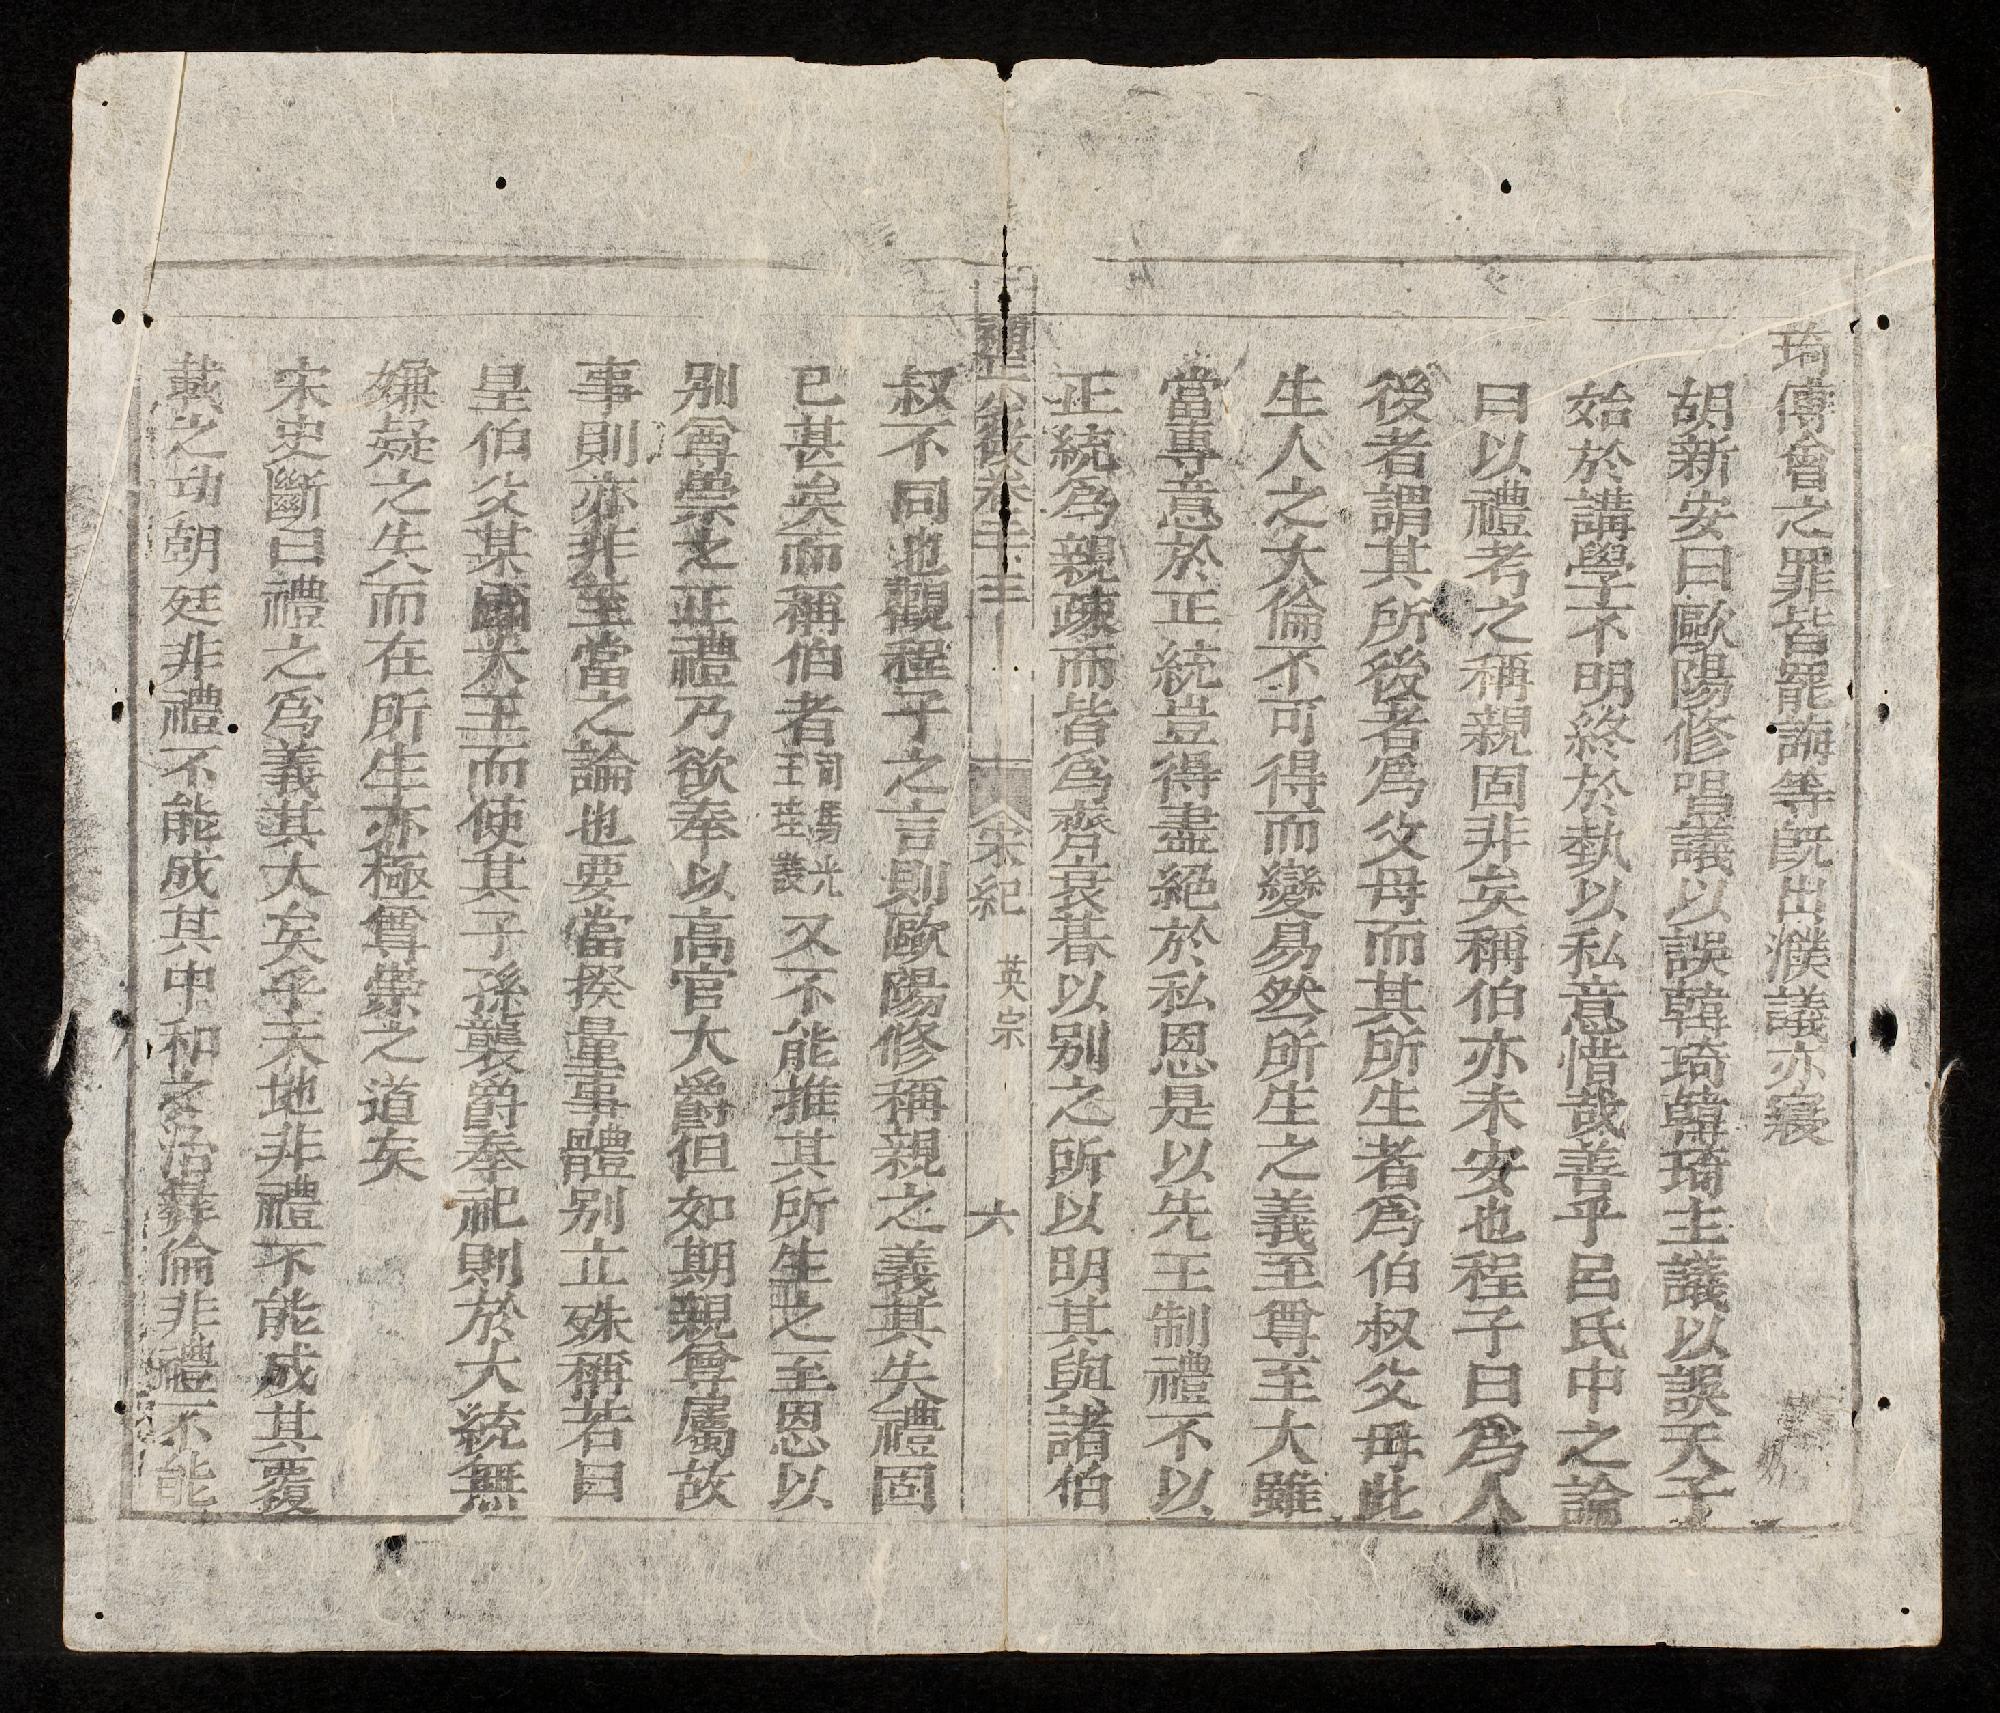 琦傅會之罪皆罷誨等旣出濮議亦寢
胡新安曰歐陽修唱議以誤韓琦韓琦主議以誤天子
始於講學不明終於執以私意惜哉善乎呂氏中之論
曰以禮考之稱親固非矣稱伯亦未安也程子曰爲人
後者謂其所後者爲父母而其所生者爲伯叔父母此
生人之大倫不可得而變易然所生之義至尊至大雖
當專意於正統豈得盡絕於私恩是以先王制禮不以
正統爲親疎而皆爲齊衰朞以别之所以明其與諸伯
後卷二十三 宋紀 英宗 六
叔不同也觀程子之言則歐陽修稱親之義其失禮固
已甚矣而稱伯者司馬光王珪議又不能推其所生之至恩以
别尊崇之正禮乃欲奉以高官大爵但如期親尊屬故
事則亦非至當之論也要當揆量事體别立殊稱若曰
皇伯父某國大王而使其子孫襲爵奉祀則於大統無
嫌疑之失而在所生亦極尊崇之道矣
宋史斷曰禮之爲義其大矣乎天地非禮不能成其覆
載之功朝廷非禮不能成其中和之治彝倫非禮不能